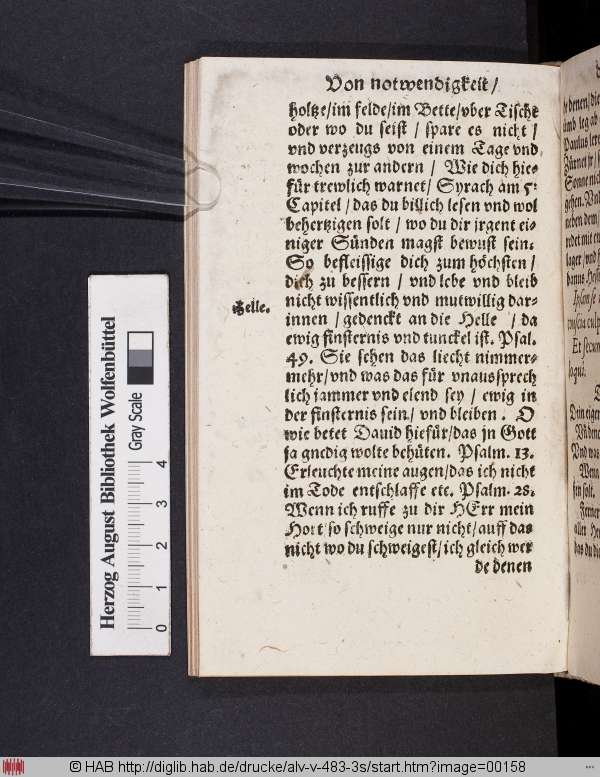 Von notwendigkeit/
holtze/im felde/im Bette/vber Tische
oder wo du seist / spare es nicht /
vnd verzeugs von einem Tage vnd
wochen zur andern / Wie dich hie⸗
für trewlich warnet/ Syrach am 5.
Capitel / das du billich lesen vnd wol
behertzigen solt / wo du dir jrgent ei⸗
niger Sünden magst bewust sein.
So befleissige dich zum höchsten /
dich zu bessern / vnd lebe vnd bleib
nicht wissentlich vnd mutwillig dar⸗
innen / gedenckt an die Helle / da
ewig finsternis vnd tunckel ist. Psal.
49. Sie sehen das liecht nimmer⸗
mehr/vnd was das für vnaussprech
lich jammer vnd elend sey / ewig in
der finsternis sein/ vnd bleiben. O
wie betet Dauid hiefür/das jn Gott
ja gnedig wolte behüten. Psalm. 13.
Erleuchte meine augen/das ich nicht
im Tode entschlaffe etc. Psalm. 28.
Wenn ich ruffe zu dir HErr mein
Hort so schweige nur nicht/auff das
nicht wo du schweigest/ich gleich wer
de denen
Helle.
Herzog August Bibliothek Wolfenbüttel
Gray Scale
0 1 2 3 4
© HAB http://diglib.hab.de/drucke/alv-v-483-3s/start.htm?image=00158